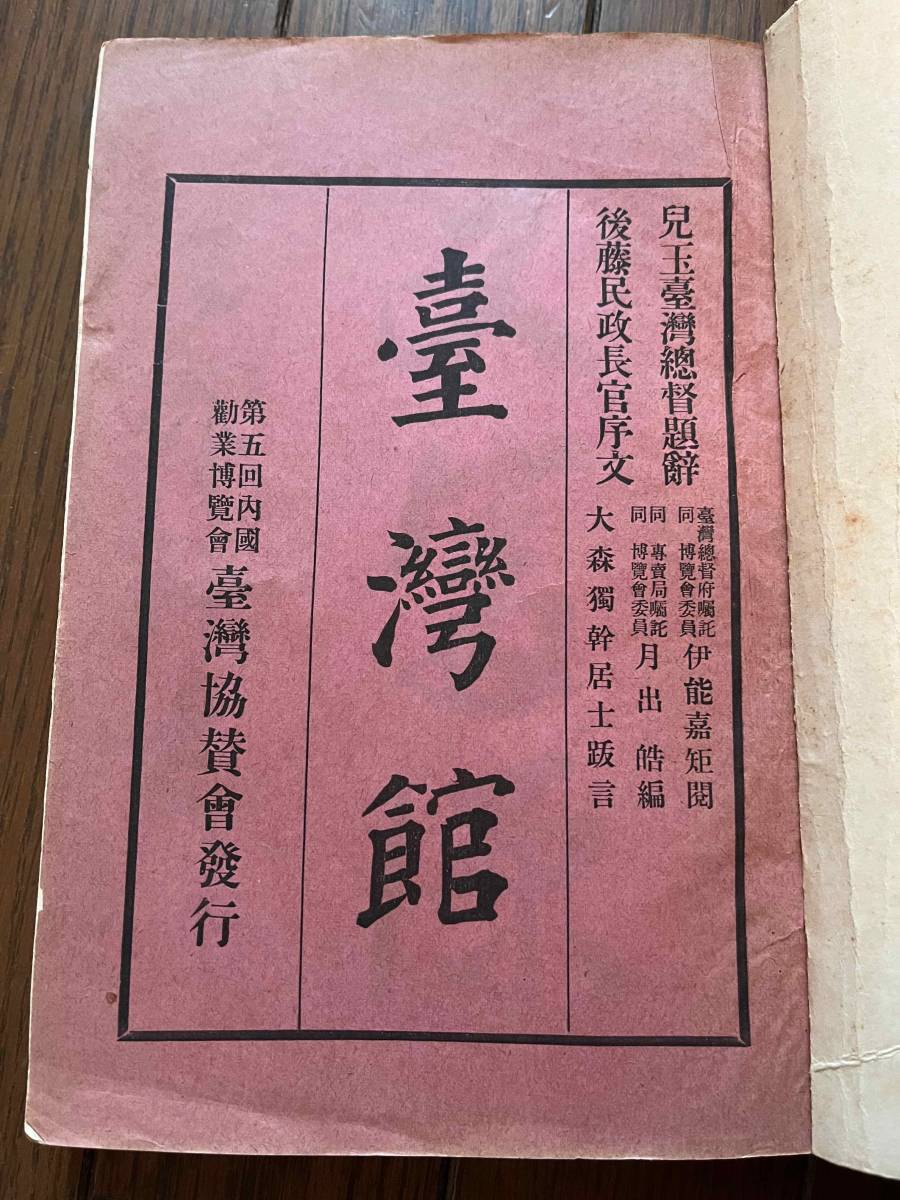 兒玉臺灣總督題辭
後藤民政長官序文
臺灣總督府囑託
同 博覽會委員
伊能嘉矩閱
同 專賣局囑託
同 博覽會委員
月出皓編
大森獨幹居士跋言
臺灣館
第五回內國
勸業博覽會
臺灣協贊會發行